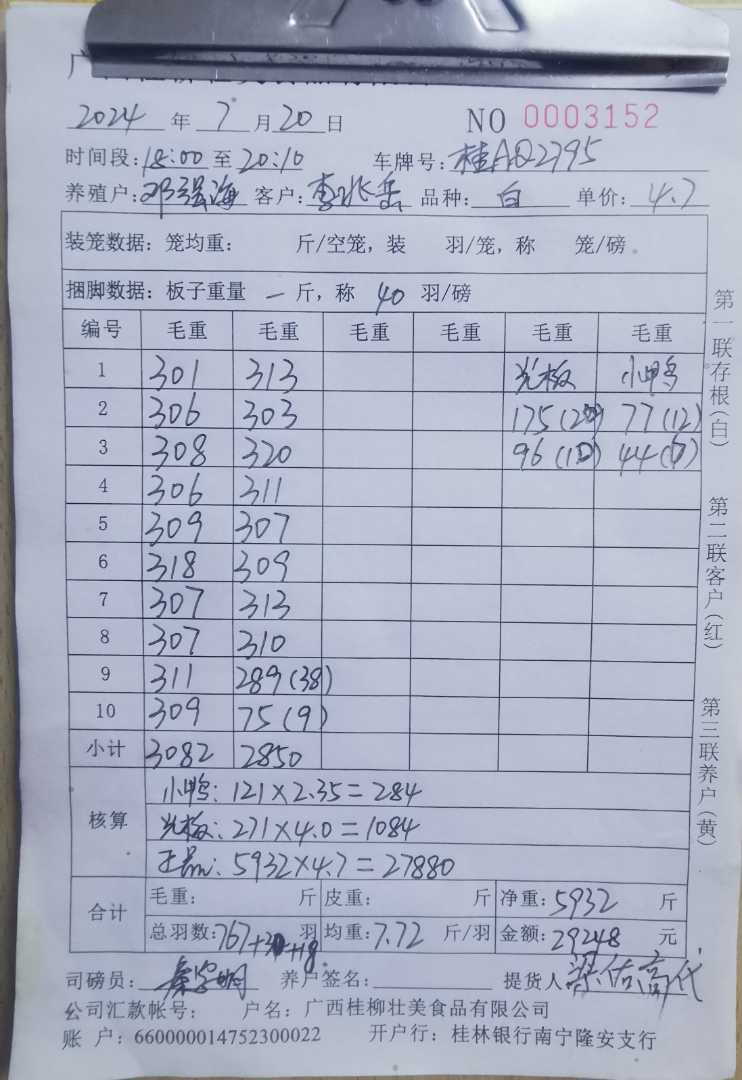 2024年7月20日 NO 0003152
时间段:18:00至20:10 车牌号:桂AQ2795
养殖户:邓强海 客户:李兆岳 品种:白 单价:4.7
装笼数据: 笼均重: 斤/空笼, 装 羽/笼, 称 笼/磅。
捆脚数据: 板子重量 一 斤, 称 40 羽/磅
编号 毛重 毛重 毛重 毛重 毛重 毛重
1 301 313 光板 小鸭
2 306 303 175(20) 77(12)
3 308 320 96(10) 44(6)
4 306 311
5 309 307
6 318 309
7 307 313
8 307 310
9 311 289(38)
10 309 75(9)
小计 3082 2850
核算
小鸭: 121×2.35=284
光板: 271×4.0=1084
正品: 5932×4.7=27880
合计
毛重: 斤 皮重: 斤 净重:5932 斤
总羽数:767+30+18羽 均重:7.72 斤/羽 金额:29248 元
司磅员: 养户签名: 提货人
公司汇款帐号: 户名: 广西桂柳壮美食品有限公司
账 户: 660000014752300022 开户行: 桂林银行南宁隆安支行
第一联存根(白)
第二联客户(红)
第三联养户(黄)